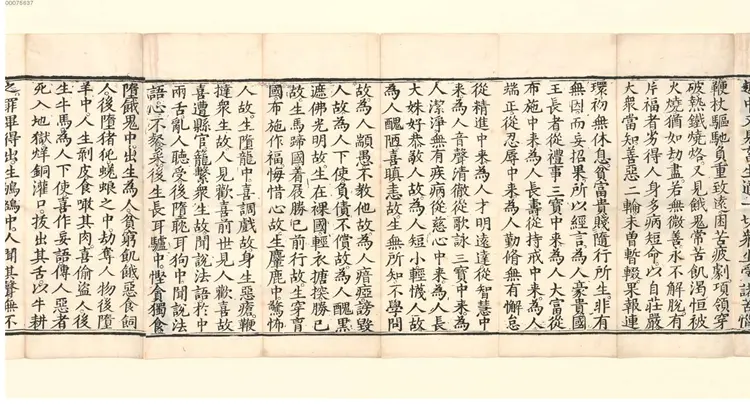 00075637
鞭杖驅馳負重致遠困苦疲劇項領穿
破熱鐵燒烙又見餓鬼常苦飢渴恒被
火燒猶如劫盡若無微善永不解脫有
片福者劣得人身多病短命以自莊嚴
大衆當知善惡二輪未曾暫輟果報連
環初無休息貧富貴賤隨行所生非有
無因而妄招果所以經言為人豪貴國
王長者從禮事三寶中来為人大富從
布施中来為人長壽從持戒中来為人
端正從忍辱中来為人勤脩無有懈怠
從精進中来為人才明遠達從智慧中
来為人音聲清徹從歌詠三寶中来為
人潔淨無有疾病從慈心中来為人長
大姝好恭敬人故為人短小輕懱人故
為人醜陋喜瞋恚故生無所知不學問
故為人顓愚不教他故為人瘖瘂謗毀
人故為人下使負債不償故為人醜黑
遮佛光明故生在裸國輕衣搪揬勝己
故生馬蹄國著屐勝己前行故生穿胷
國布施作福悔惜心故生麞鹿中驚怖
人故生墮龍中喜調戲故身生惡瘡鞭
撻衆生故人見歡喜前世見人歡喜故
喜遭縣官籠繫衆生故聞說法語於中
兩舌亂人聽受後墮耽耳狗中聞說法
語心不餮采後生長耳驢中慳貪獨食
墮餓鬼中出生為人貧窮飢餓惡食飼
人後墮猪㹠蜣蜋之中劫奪人物後墮
羊中人生剝皮食噉其肉喜偷盜人後
生牛馬為人下使喜作妄語傳人惡者
死入地獄烊銅灌口拔出其舌以牛耕
之罪畢得出生鴝鵒中人聞其聲無不